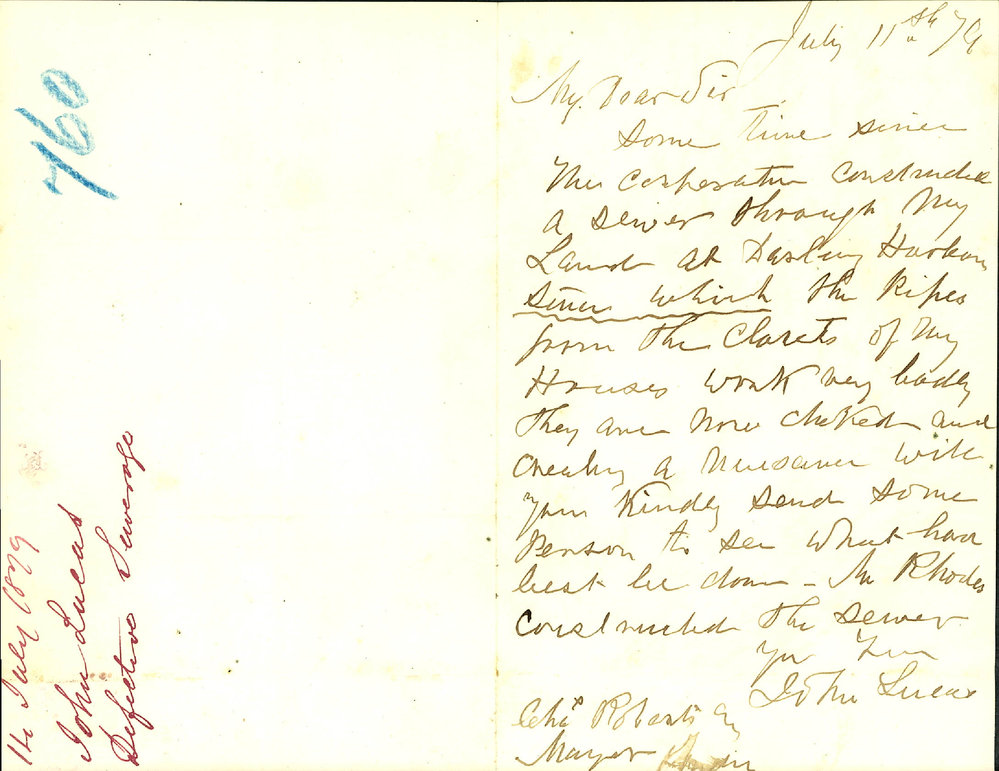 July 11th /79
My Dear Sir
Some time since
the Corporation Constructed
a sewer through My
Land at Darling Harbour
since which the Pipes
from the Closets of My
Houses work very badly
they are now choked and
creating a Nuisance will
you Kindly send some
Person to see what had
best be done - Mr Rhodes
constructed the sewer
John Lucas
Chas Roberts Esq
Mayor
760
14 July 1879
John Lucas
Defective Sewerage